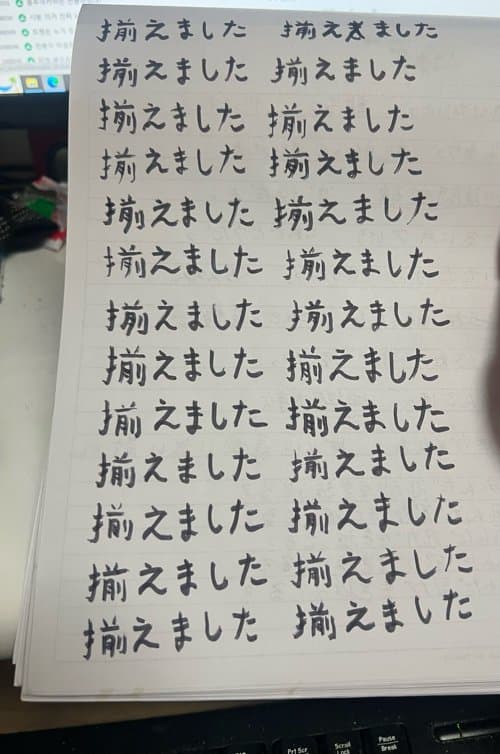 揃えました 揃え友ました
揃えました 揃えました
揃えました 揃えました
揃えました 揃えました
揃えました 揃えました
揃えました 揃えました
揃えました 揃えました
揃えました 揃えました
揃えました 揃えました
揃えました 揃えました
揃えました 揃えました
揃えました 揃えました
揃えました 揃えました
Prt Scr
Scroll
Lock
Pause
Break